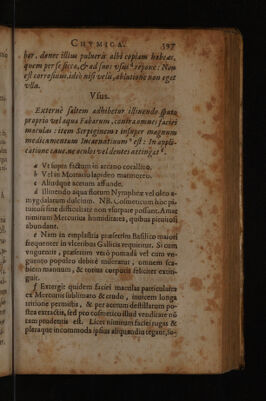 CHYMICA. 397
ber, donec illius pulveris albi copiam habeas,
quem per se sicca, & ad suos usus repone. Non
est corrosivus, ideò nisi velis, ablutione non eget
ulla.
Usus.
Externè saltem adhibetur illinendo sputo
proprio vel aqua Fabarum, contra omnes faciei
maculas: item Serpiginem: insuper magnum
medicamentum Incarnativum est: In appli-
catione cave, ne oculos vel dentes attingat.
a Ut supra factum in arcano corallino.
b Vel in Mortario lapideo marmoreo.
c Aliudque acetum affunde.
d Illinendo aqua florum Nymphææ vel oleo a-
mygdalarum dulcium. NB. Cosmeticum hoc pi-
tuitosi sine difficultate non usurpare possunt. Amat
nimirum Mercurius humiditatem, quibus pituitosi
abundant.
e Nam in emplastris præsertim Basilico maiori
frequenter in ulceribus Gallicis requiritur. Si cum
unguentis, præsertim verò pomadâ vel cum un-
guento populeo debitè misceatur, omnem sca-
biem manuum, & totius corporis feliciter extin-
guit.
f Extergit quidem faciei maculas particulariter
ex Mercurio sublimato & crudo, invicem longa
tritione permistis, & per acetum destillatum po-
stea extractis, sed pro cosmetico illud vendicare nō
tam prudentis est. Licet nimirum faciei rugas &
pleraque incommoda ipsius aliquandiu tegant, so-